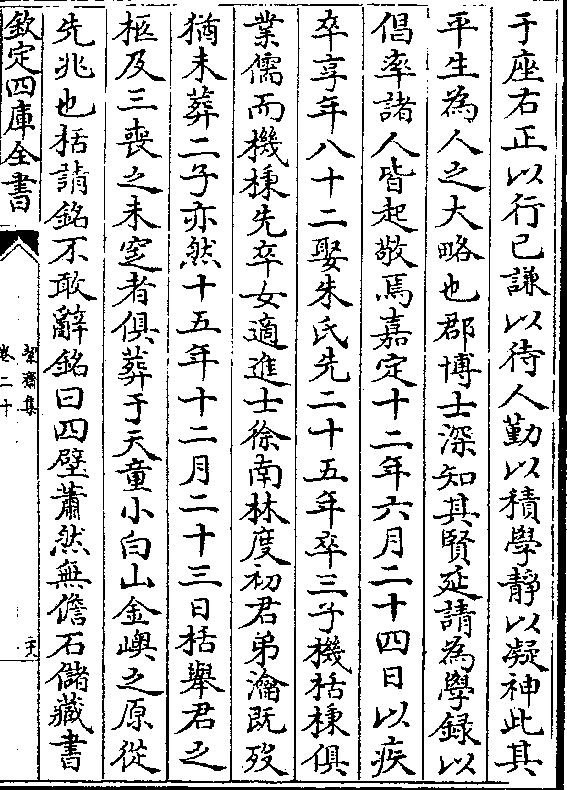 于座右正以行己謙以待人勤以積學靜以凝神此其
平生為人之大略也郡博士深知其賢延請為學録以
倡率諸人皆起敬焉嘉定十二年六月二十四日以疾
卒享年八十二娶朱氏先二十五年卒三子機栝棟俱
業儒而機棟先卒女適進士徐南林度初君弟瀹既歿
猶未葬二子亦然十五年十二月二十三日栝舉君之
柩及三喪之未窆者俱葬于天童小白山金嶼之原從
先兆也栝請銘不敢辭銘曰四壁蕭然無儋石儲藏書
欽定四庫全書
絜齋集
卷二十